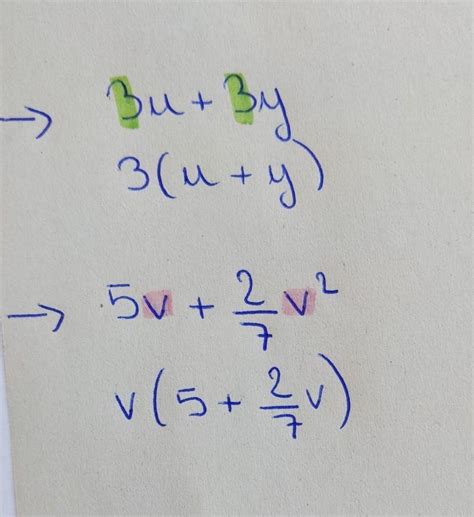 → 3u + 3y
3(u + y)
→ 5v + 2/7 v²
v(5 + 2/7 v)